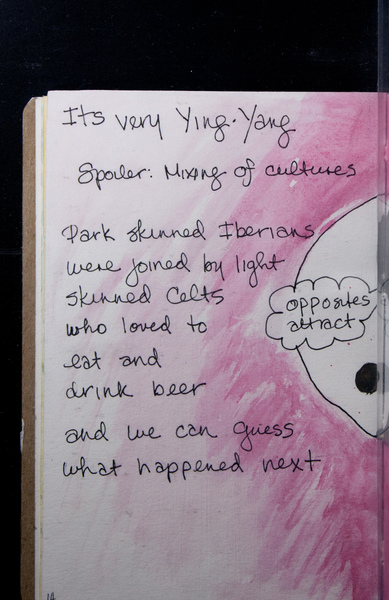 Its very Ying-Yang
Spoiler: Mixing of cultures
Dark skinned Iberians
were joined by light
skinned Celts
who loved to
eat and
drink beer
and we can guess
what happened next
opposites
attract
14